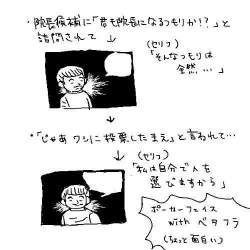 ・院長候補に「君も院長になるつもりか!?」と
詰問されて
(セリフ)
「そんなつもりは
全然…」
・「じゃあワシに投票したまえ」と言われて…
(セリフ)
「私は自分で人を
選びますから」
ポーカーフェイス
with ベタフラ
(ちょっと面白い)